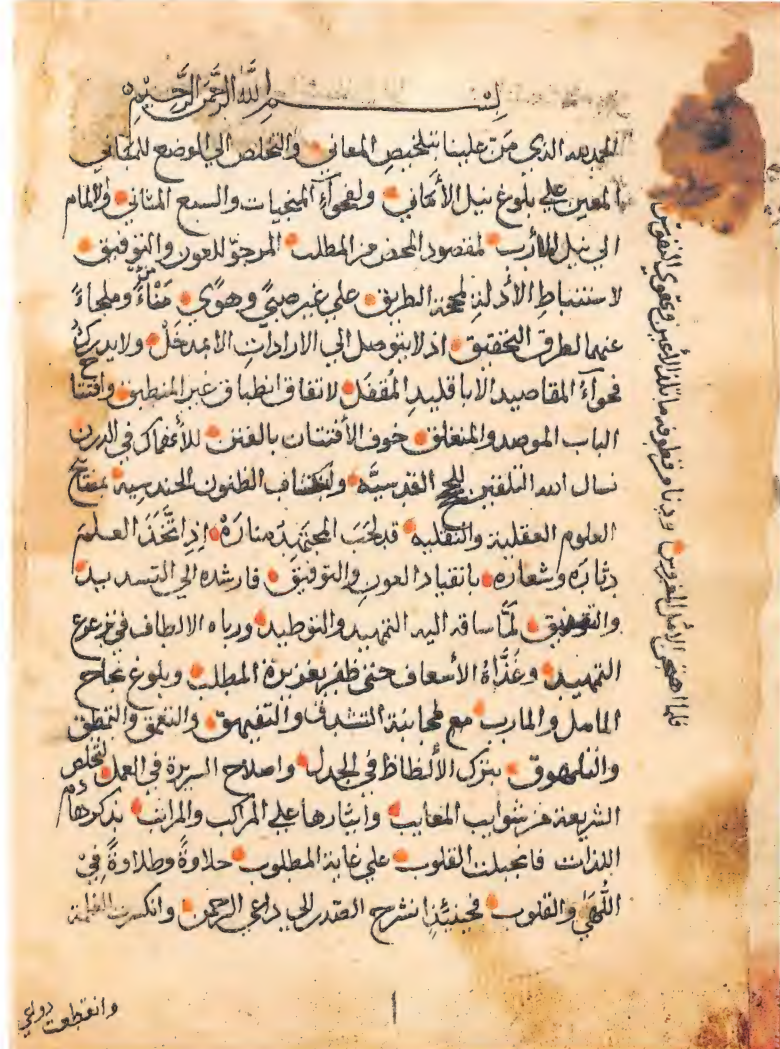 بسم الله الرحمن الرحيم
الحمد لله الذي منّ علينا بتلخيص المعاني والتخلص الي الموضع للمعاني
المعين علي بلوغ نيل الأماني ولفحوآء المنجيات والسبع المثاني والالمام
الي نيل المأرب لمقصود المحض من المطلب المرجوّ للعون والتوفيق
لاستنباط الأدلة لمحجة الطريق علي غير صبيً وهوًي مَنْاءً وملجاءً
عنهما لطرق التحقيق اذ لا يتوصل الي الارادات الا بمدخَلْ ولا يدركُ
فحوآءُ المقاصيد الا باقليد المُقفَل لاتفاق انطباق غير المنطبق وافتتاح
الباب الموصد والمنغلق خوف الأفتتان بالفتن للأنهماك في الدرن
نسال الله التلقين للحجج القدسيَّه ولكشاف الظنون الحندسية بمفتاح
العلوم العقلية والنقلية قد لحَبَ المجتهد منارَهْ إذِ اتَّخَذَ العلمَ
دثارَه وشعارَه بانقياد العون والتوفيق فارشده الي التسديد
والتوفيق لمَّا ساقه اليه التمهيد والتوطيد ورباه الالطاف في ترعرع
التمهيد وغُذَّاهُ الأسعاف حتي ظفر بغزيرة المطلب وبلوغ نجاح
المامل والمارب مع مجانبة التشدق والتفيهق والتعمق والتمطق
والتلهوق بترك الألظاظ في الجدل واصلاح السريرة في العمل لتخلص
الشريعة من شوايب المعايب وايثارها علي المراكب والمراتب بذكرهادم
اللذات فانجبلت القلوب علي غاية المطلوب حلاوةً وطلاوةً في
اللُّهَي والقلوب فحينئذٍ انشرح الصّدر لي داعي الرحمن وانكسرت الظلمة
وانقطعت دواعي
فلما اهتجن الأمل المغروس ودنا من قطوفه ما تلذ الأعين وتهوي النفوس
١